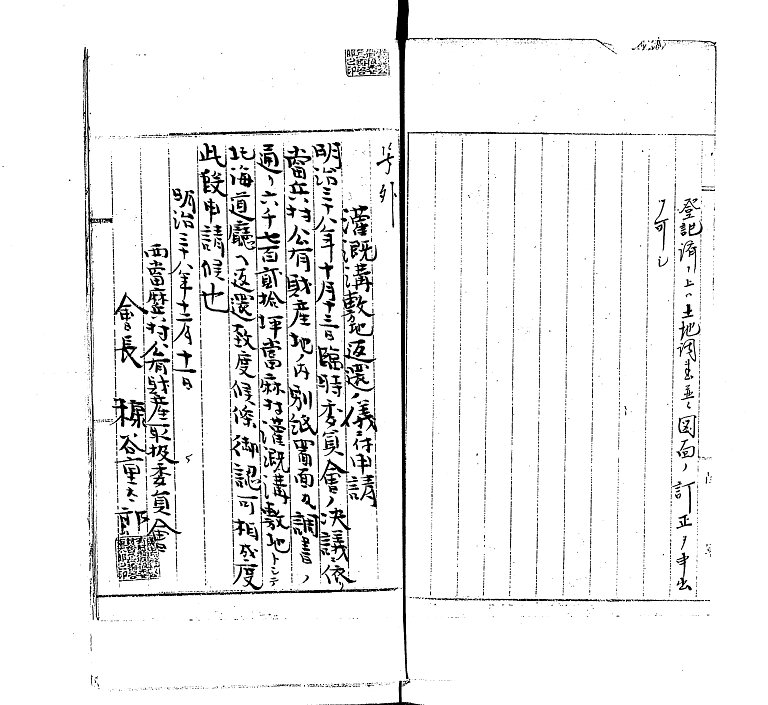 登記済ノ上ハ土地調書並ニ図面ノ訂正ノ申出
ノ可シ
号外
灌漑溝敷地返還ノ儀ニ付申請
明治三十八年十月十三日臨時委員會ノ決議ニ依リ
當兵村公有財産地ノ内別紙圖面及調書ノ
通リ六千七百貳拾坪當麻村灌漑溝敷地トシテ
北海道廳ヘ返還致度候條御認可相成度
此段申請候也
明治三十八年十二月十一日
西當麻兵村公有財産取扱委員會
會長 糠谷重太郎